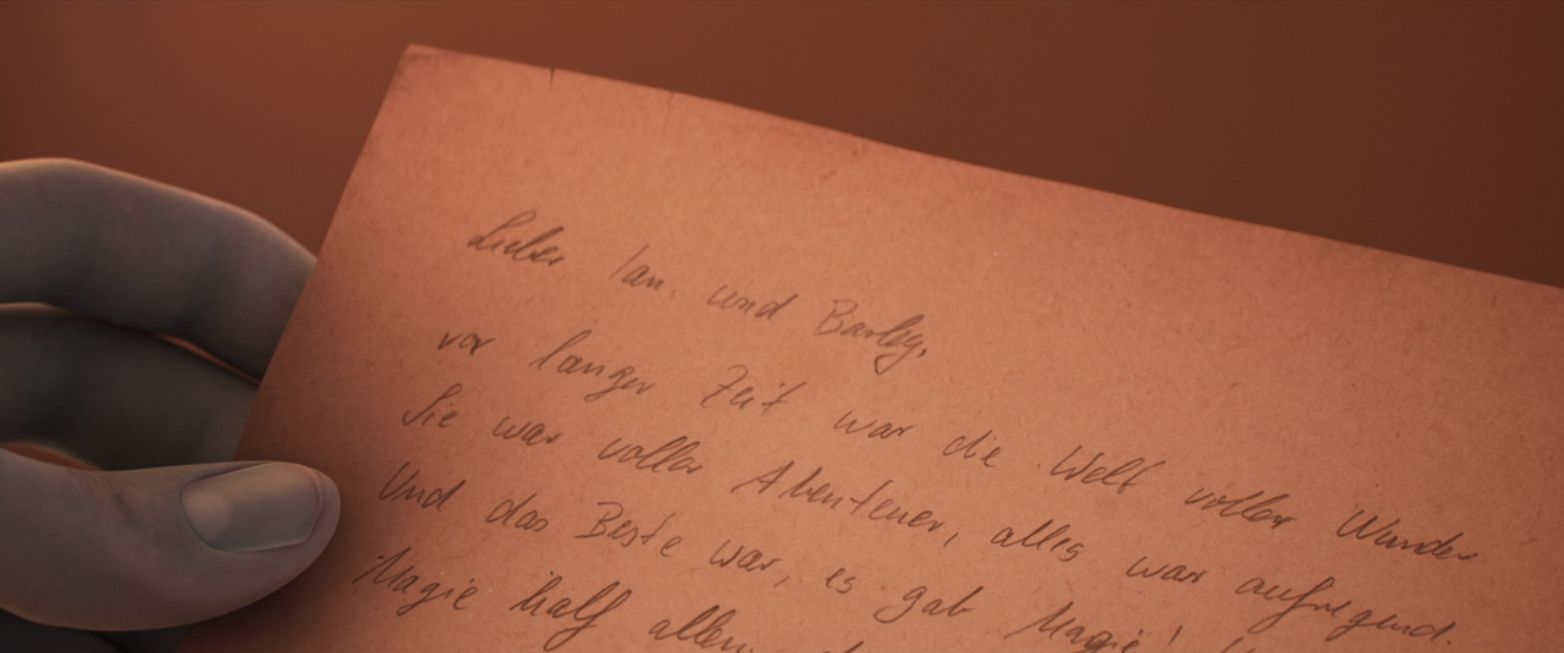 Lieber Ian und Barley,
vor langer Zeit war die Welt voller Wunder
Sie war voller Abenteuer, alles war aufregend.
Und das Beste war, es gab Magie!
Magie half allen